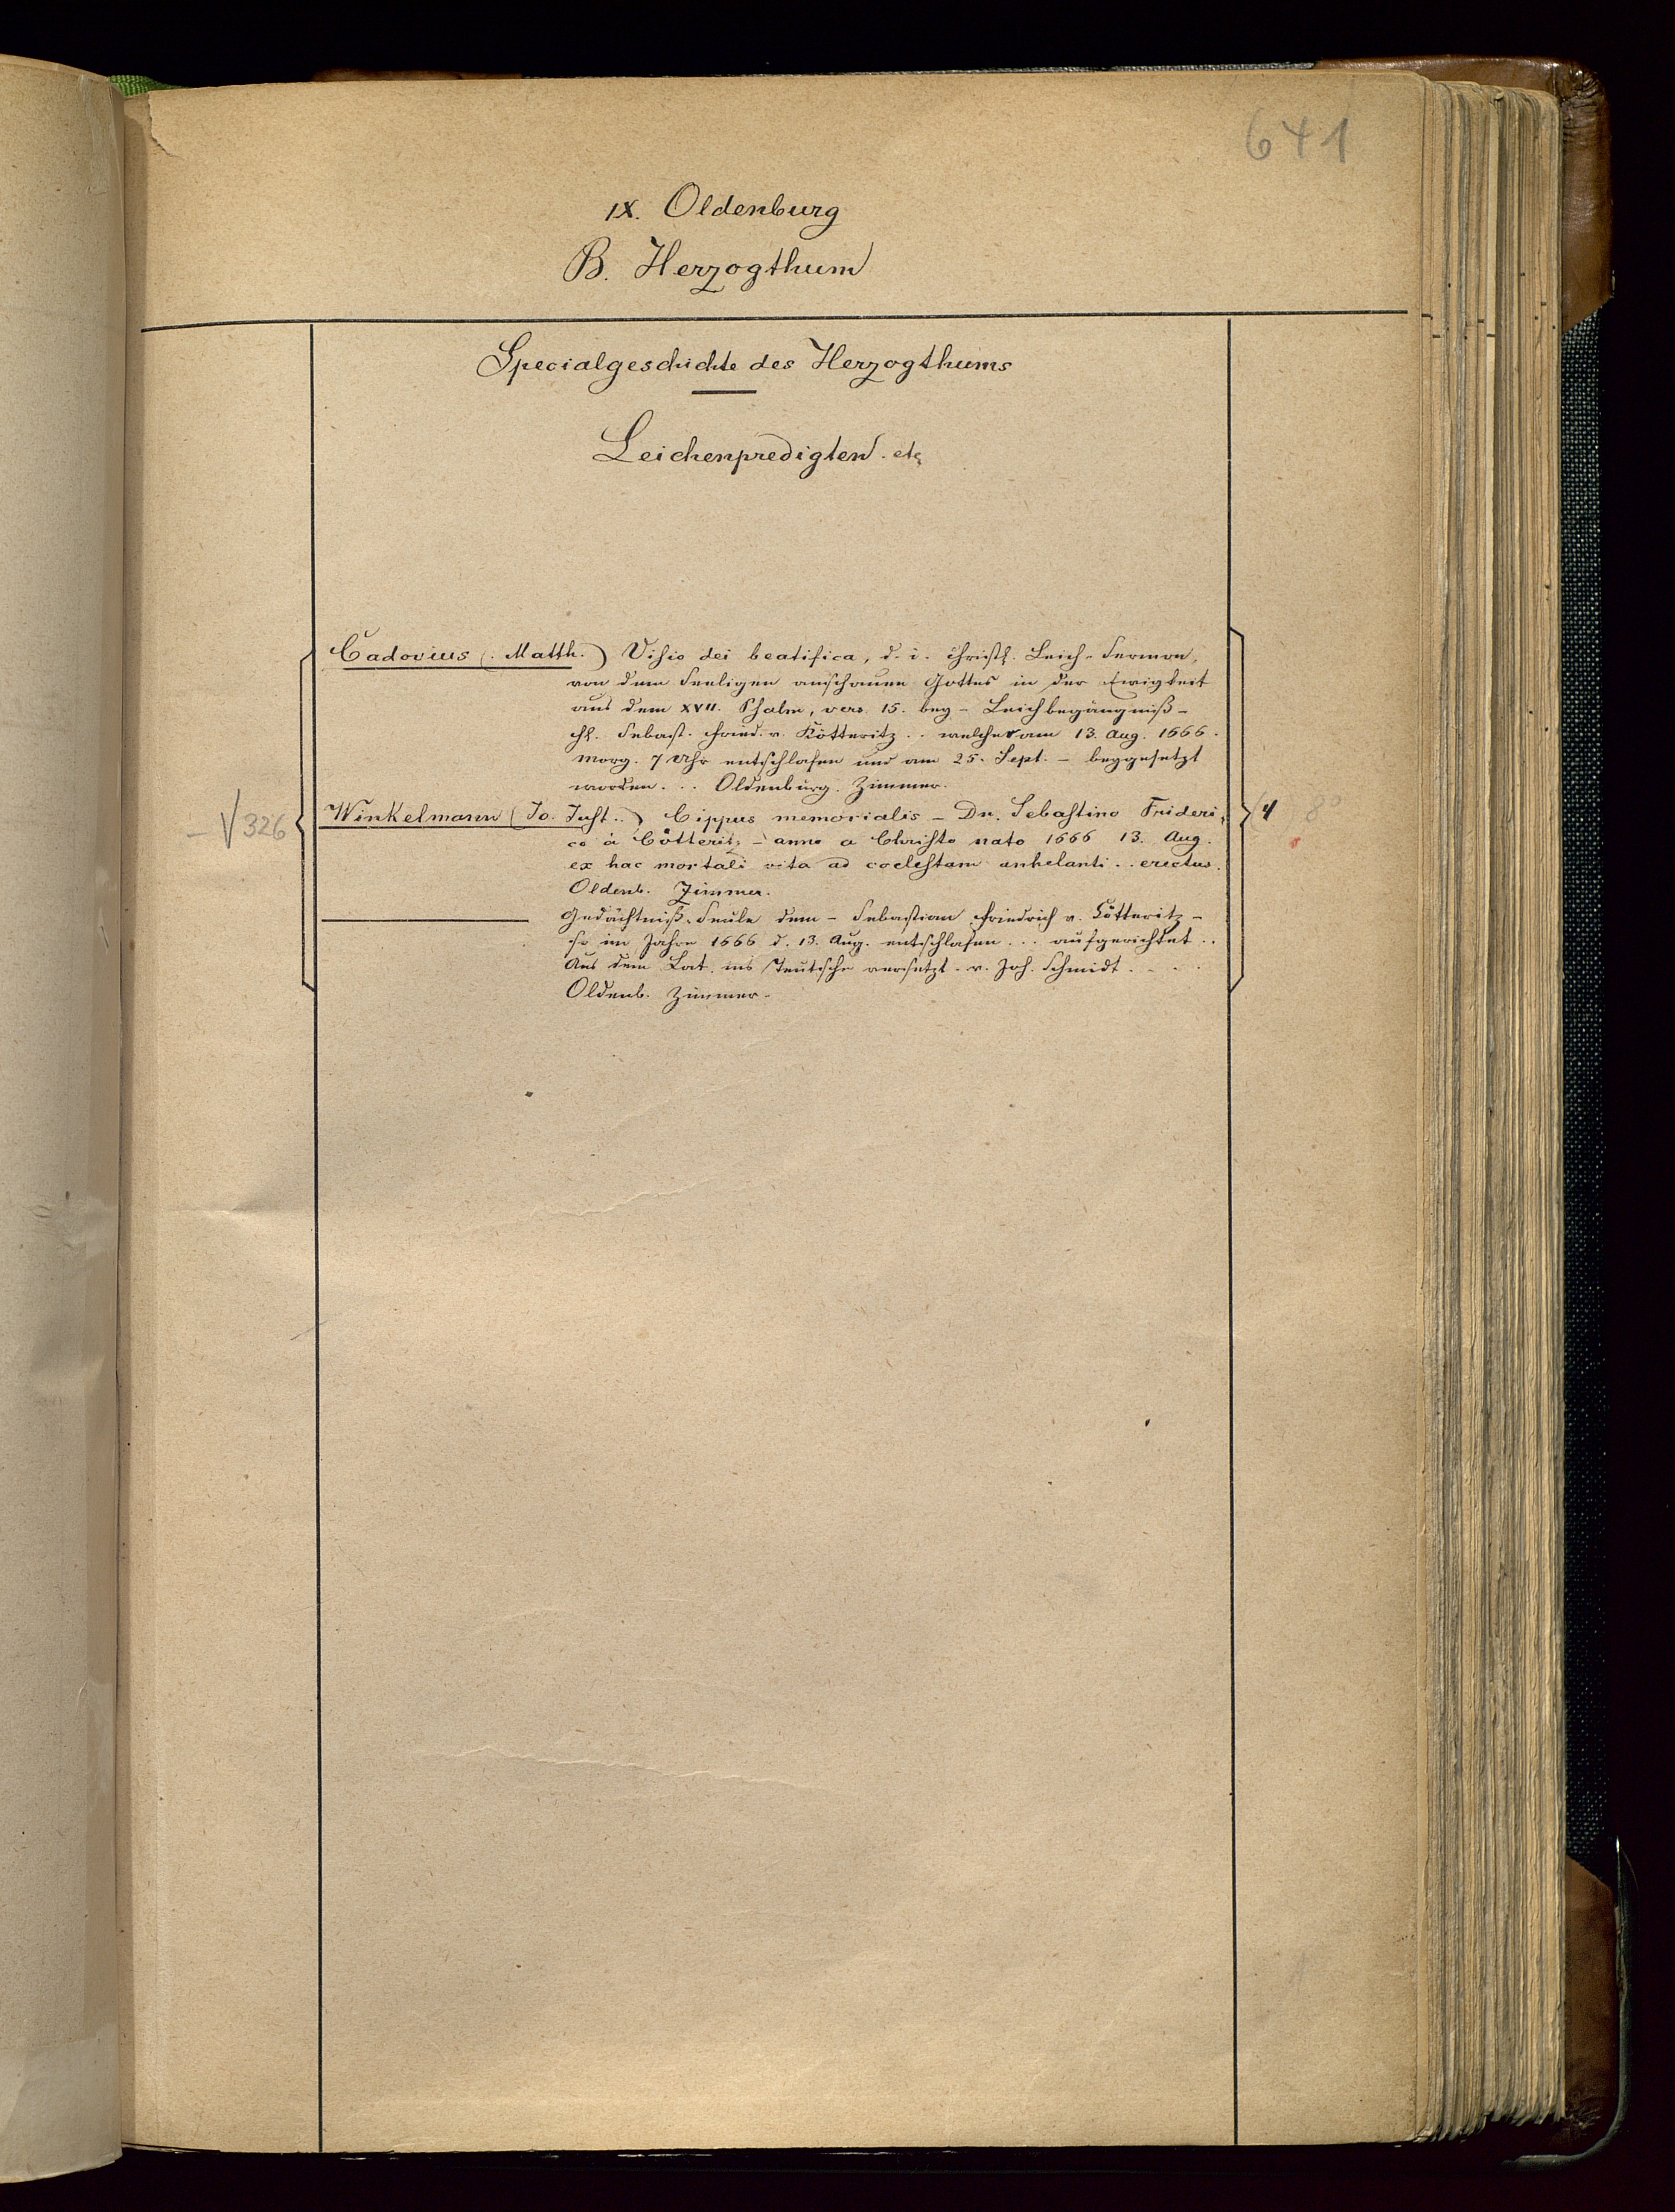 641
IX. Oldenburg
B. Herzogthum
Specialgeschichte des Herzogthums
Leichenpredigten. etc
Cadovius (. Matth.) Visio dei beatifica, d. i. christl. Leich-Sermon,
von dem Seeligen anschauen Gottes in der Ewigkeit
aus dem XVII. Psalm, vers. 15. bey - Leichbegängniß -
H. Sebast. Fried. v. Kötteritz .. welcher am 13. Aug. 1666.
morg. 7 Uhr entschlafen und am 25. Sept. - beygesetzt
worden... Oldenburg. Zimmer.
- V 326
Winkelmann (Jo. Just..) Cippus memorialis - Dn. Sebastino Frideri-
co à Cötteritz - anno a Christo nato 1666 13. Aug.
ex hac mortali vita ad coelestam anhelanti .. erectus.
Oldenb. Zimmer.
4
8°
Gedächtniß-Seule dem - Sebastian Friedrich v. Kötteritz -
so im Jahre 1666 d. 13. Aug. entschlafen ... aufgerichtet ..
Aus dem Lat. ins Teutsche versetzt. v. Joh. Schmidt. . . .
Oldenb. Zimmer.